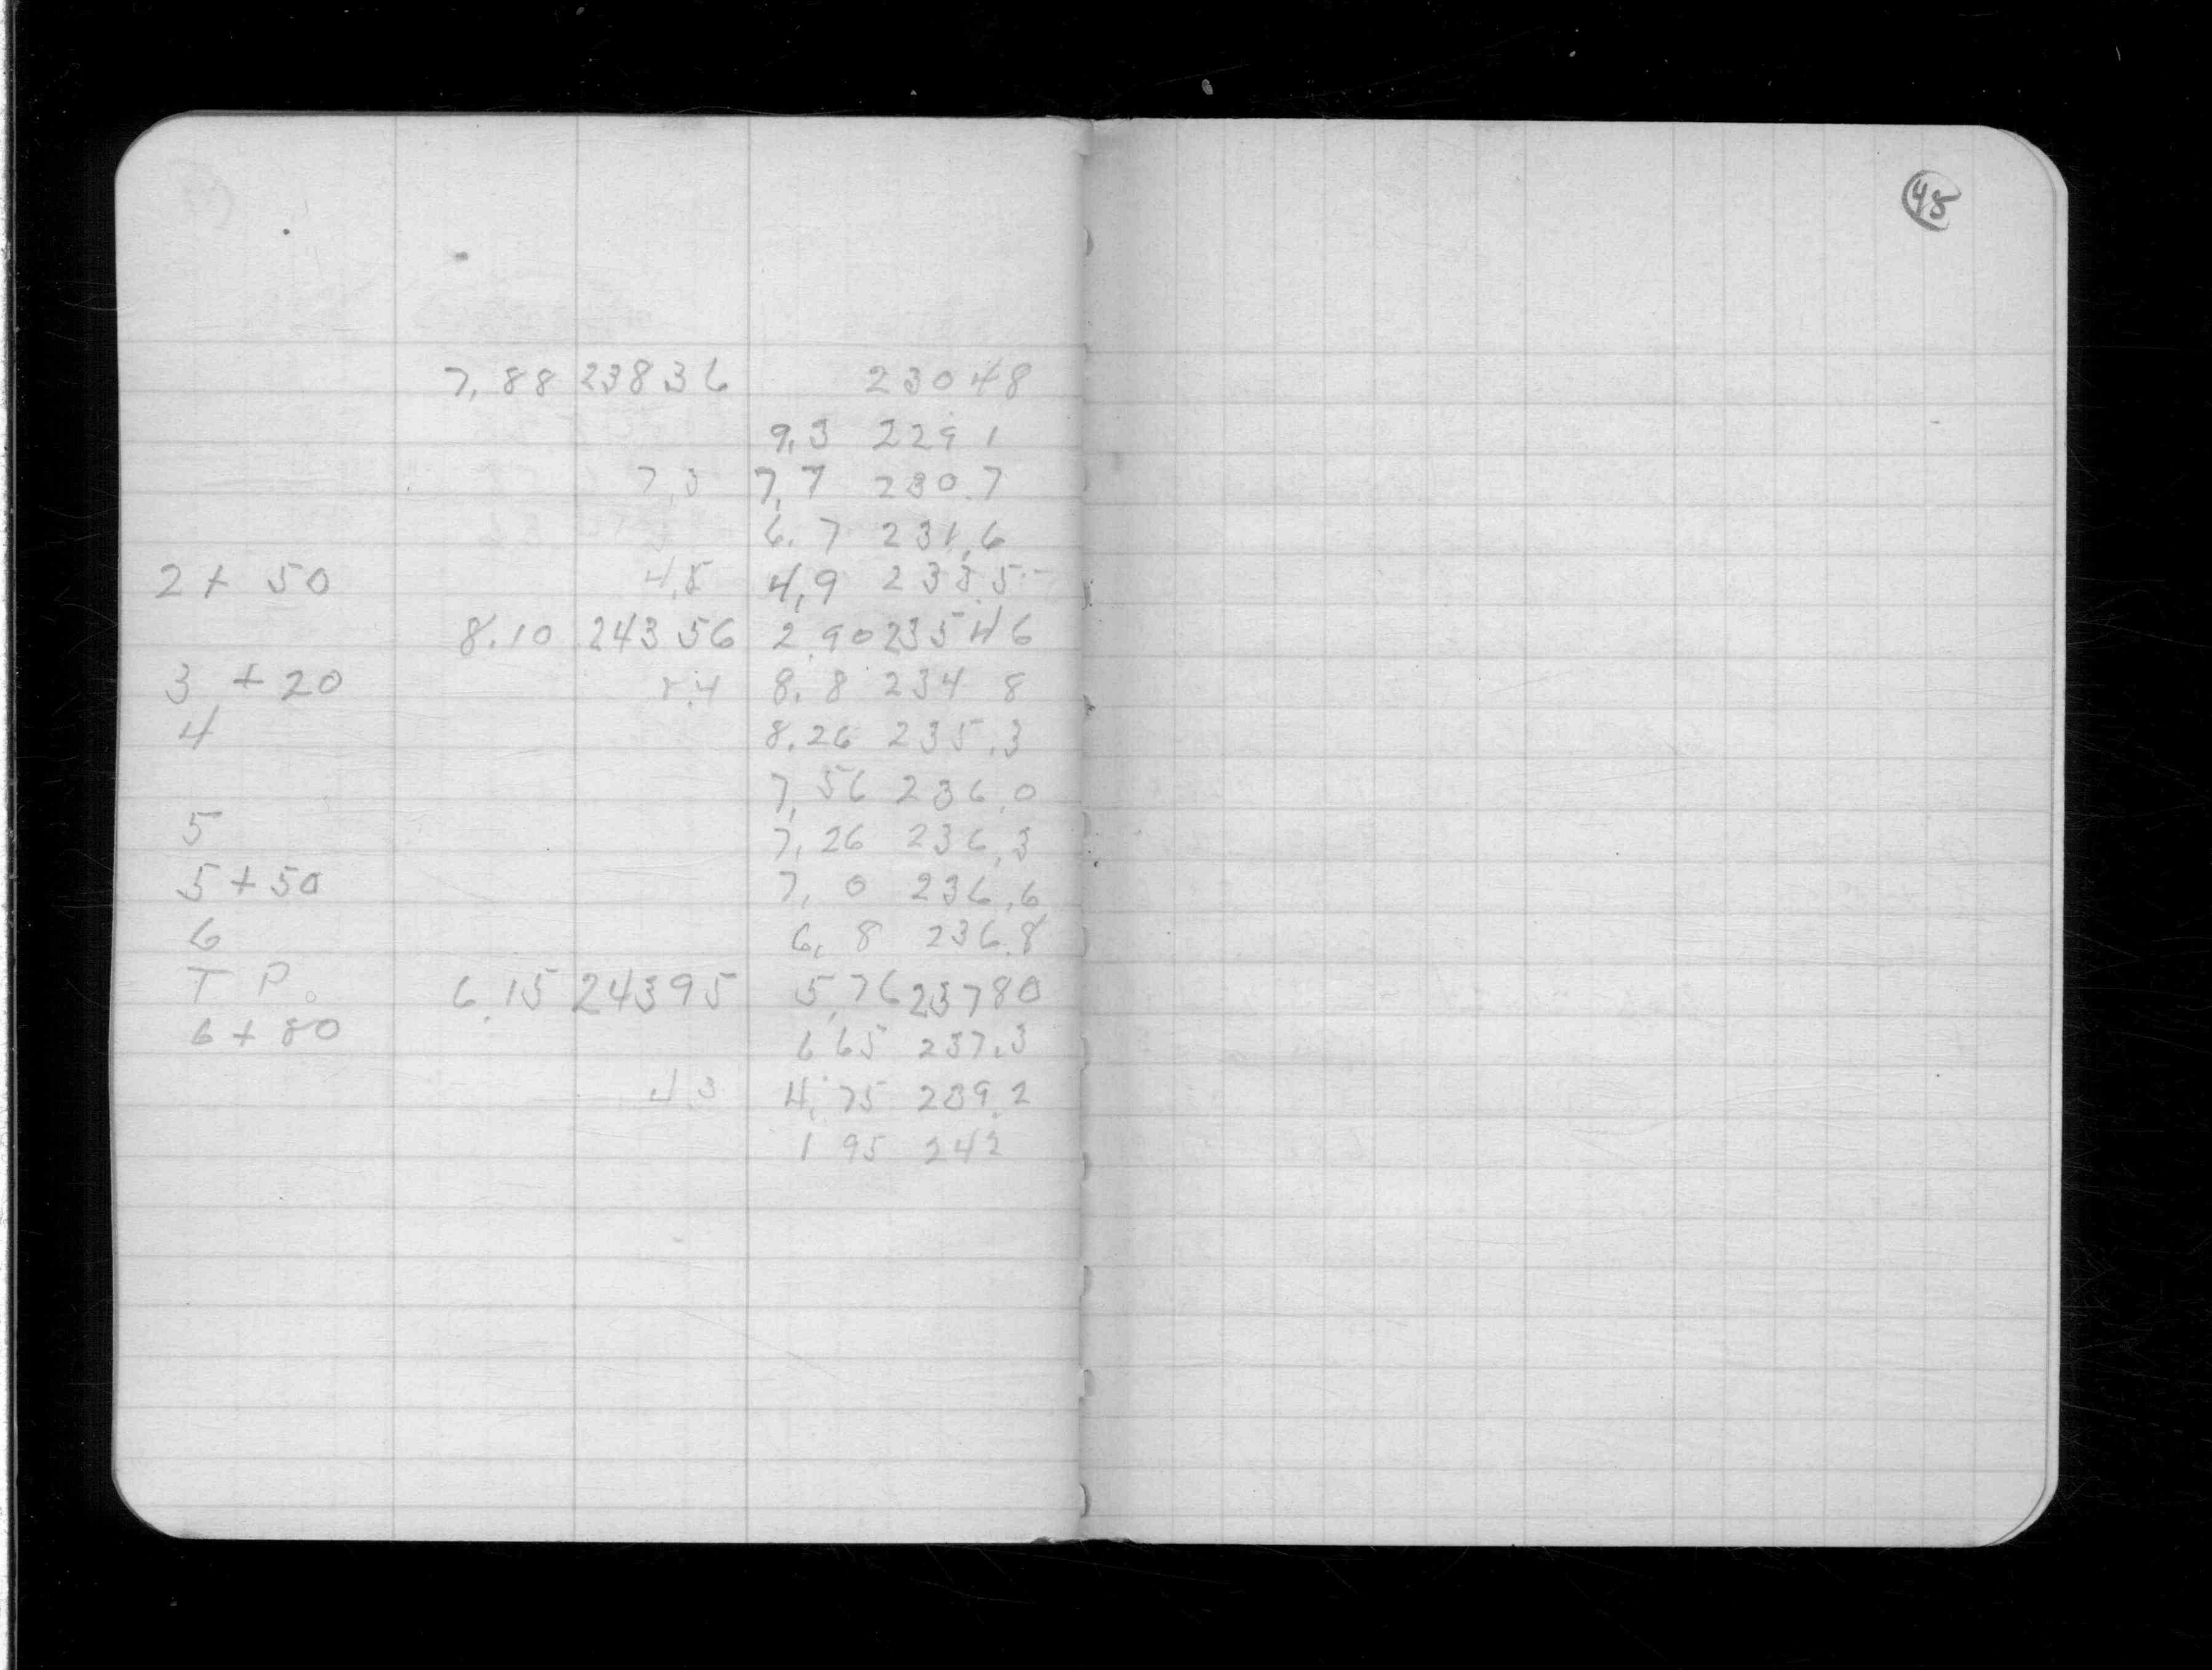 48
7,88 23836 23048
9,3 229 1
7,3 7,7 230.7
6.7 231,6
2 + 50 4,8 4,9 233.5
8.10 243 56 2.90 235 46
3 + 20 8.4 8.8 234 8
4 8.26 235.3
7,56 236.0
5 7,26 236,3
5 + 50 7, 0 236,6
6 6, 8 236.8
T P. 6.15 24395 5,76 23780
6 + 80 6 65 237.3
4.3 4,75 239.2
1 95 242